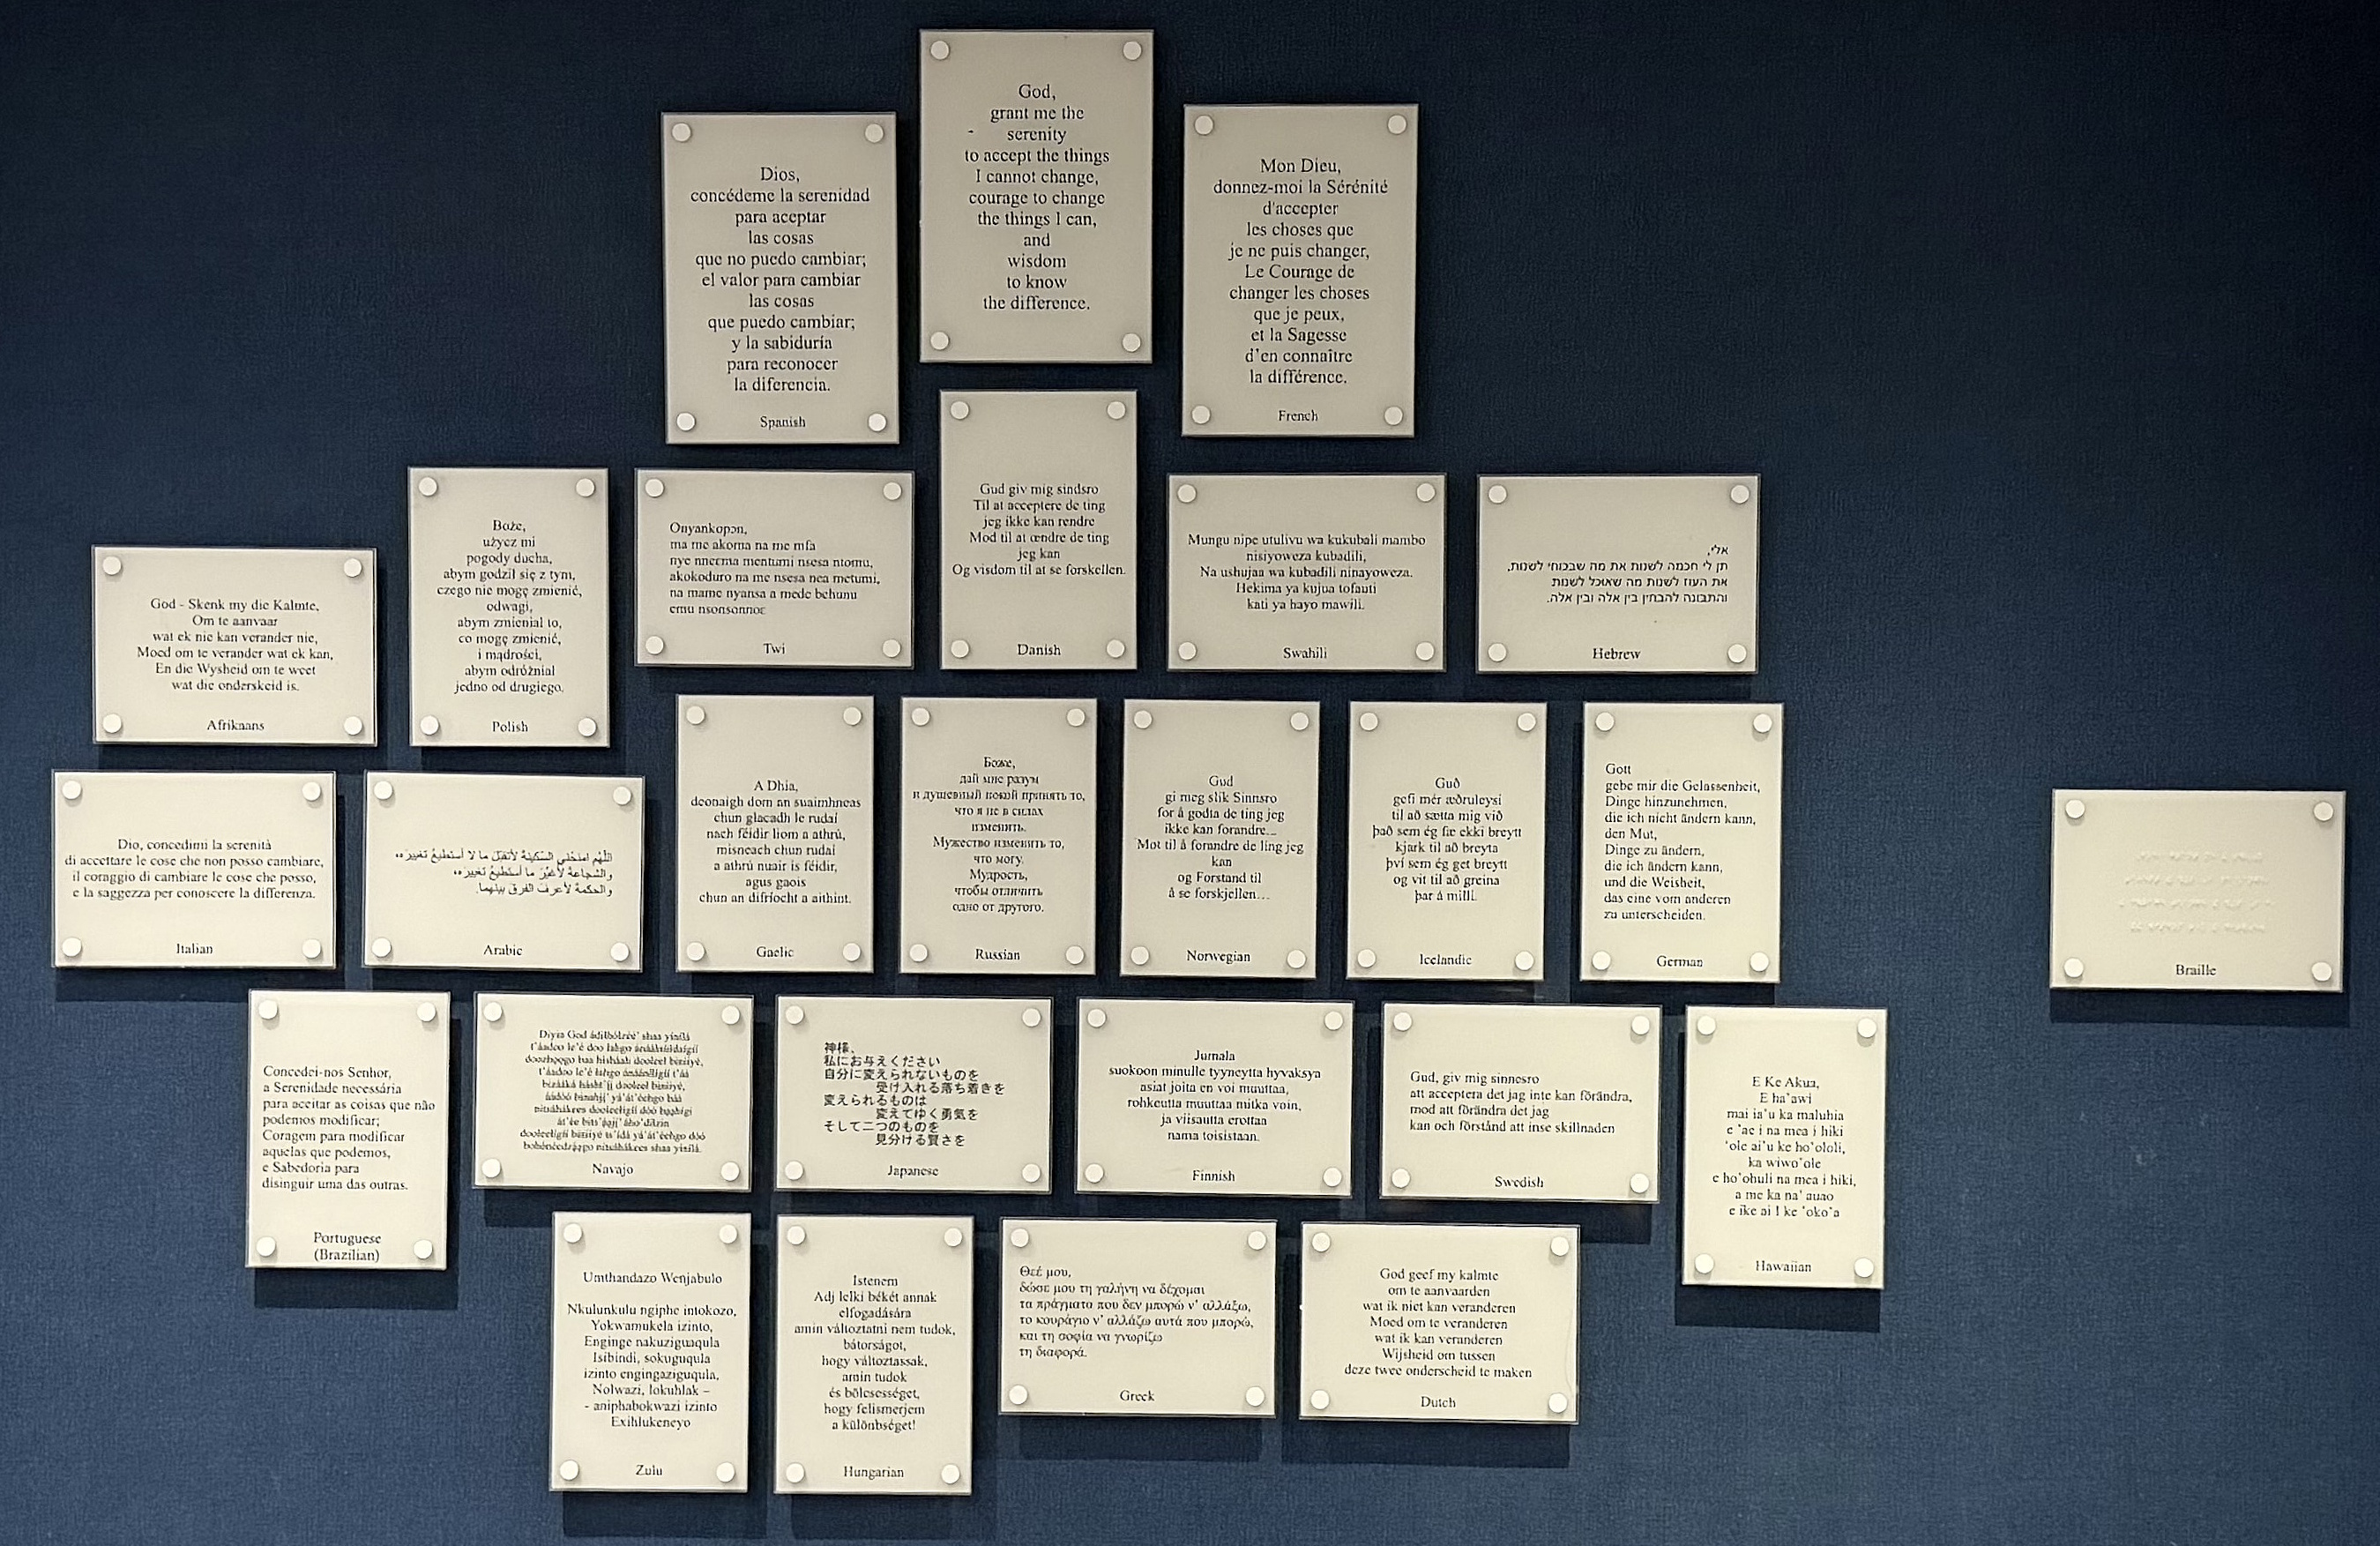 God,
grant me the
serenity
to accept the things
I cannot change,
courage to change
the things I can,
and
wisdom
to know
the difference.
Dios,
concédeme la serenidad
para aceptar
las cosas
que no puedo cambiar;
el valor para cambiar
las cosas
que puedo cambiar;
y la sabiduría
para reconocer
la diferencia.
Spanish
Mon Dieu,
donnez-moi la Sérénité
d'accepter
les choses que
je ne puis changer,
Le Courage de
changer les choses
que je peux,
et la Sagesse
d'en connaître
la différence.
French
God - Skenk my die Kalmte,
Om te aanvaar
wat ek nie kan verander nie,
Moed om te verander wat ek kan,
En die Wysheid om te weet
wat die onderskeid is.
Afrikaans
Boże,
użycz mi
pogody ducha,
abym godził się z tym,
czego nie mogę zmienić,
odwagi,
abym zmieniał to,
co mogę zmienić,
i mądrości,
abym odróżniał
jedno od drugiego.
Polish
Onyankopɔn,
ma me akoma na me mfa
nye nneɛma mentumi nsesa ntomu,
akokoduro na me nsesa nea metumi,
na mame nyansa a mede behunu
emu nsonsonnoɛ
Twi
Gud giv mig sindsro
Til at acceptere de ting
jeg ikke kan rendre
Mod til at œndre de ting
jeg kan
Og visdom til at se forskellen.
Danish
Mungu nipe utulivu wa kukubali mambo
nisiyoweza kubadili,
Na ushujaa wa kubadili ninayoweza.
Hekima ya kujua tofauti
kati ya hayo mawili.
Swahili
אלי,
תן לי חכמה לשנות את מה שבכוחי לשנות,
את העוז לשנות מה שאוכל לשנות
והתבונה להבחין בין אלה ובין אלה.
Hebrew
Dio, concedimi la serenità
di accettare le cose che non posso cambiare,
il coraggio di cambiare le cose che posso,
e la saggezza per conoscere la differenza.
Italian
اللّهُم امنحْني السّكينة لأتقبّل ما لا أستطيعُ تغييرَه،
والشجاعة لأغيّرَ ما أستطيعُ تغييرَه،
والحكمة لأعرفَ الفرق بينهما.
Arabic
A Dhia,
deonaigh dom an suaimhneas
chun glacadh le rudaí
nach féidir liom a athrú,
misneach chun rudaí
a athrú nuair is féidir,
agus gaois
chun an difríocht a aithint.
Gaelic
Боже,
дай мне разум
и душевный покой принять то,
что я не в силах
изменить.
Мужество изменить то,
что могу.
Мудрость,
чтобы отличить
одно от другого.
Russian
Gud
gi meg slik Sinnsro
for å godta de ting jeg
ikke kan forandre...
Mot til å forandre de ting jeg
kan
og Forstand til
å se forskjellen...
Norwegian
Guð
gefi mér æðruleysi
til að sætta mig við
það sem ég fæ ekki breytt
kjark til að breyta
því sem ég get breytt
og vit til að greina
þar á milli.
Icelandic
Gott
gebe mir die Gelassenheit,
Dinge hinzunehmen,
die ich nicht ändern kann,
den Mut,
Dinge zu ändern,
die ich ändern kann,
und die Weisheit,
das eine vom anderen
zu unterscheiden.
German
Braille
Concedei-nos Senhor,
a Serenidade necessária
para aceitar as coisas que não
podemos modificar;
Coragem para modificar
aquelas que podemos,
e Sabedoria para
disinguir uma das outras.
Portuguese
(Brazilian)
Navajo
神様、
私にお与えください
自分に変えられないものを
受け入れる落ち着きを
変えられるものは
変えてゆく勇気を
そして二つのものを
見分ける賢さを
Japanese
Jumala
suokoon minulle tyyneytta hyvaksya
asiat joita en voi muuttaa,
rohkeutta muuttaa mitka voin,
ja viisautta erottaa
nama toisistaan.
Finnish
Gud, giv mig sinnesro
att acceptera det jag inte kan förändra,
mod att förändra det jag
kan och förstånd att inse skillnaden
Swedish
E Ke Akua,
E ha'awi
mai ia'u ka maluhia
e 'ae i na mea i hiki
'ole ai'u ke ho'ololi,
ka wiwo'ole
e ho'ohuli na mea i hiki,
a me ka na' auao
e ike ai I ke 'oko'a
Hawaiian
Umthandazo Wenjabulo
Nkulunkulu ngiphe intokozo,
Yokwamukela izinto,
Enginge nakuziguaqula
Isibindi, sokuguqula
izinto engingaziguqula,
Nolwazi, lokuhlak –
- aniphabokwazi izinto
Exihlukeneyo
Zulu
Istenem
Adj lelki békét annak
elfogadására
amin változtatni nem tudok,
bátorságot,
hogy változtassak,
amin tudok
és bölcsességet,
hogy felismerjem
a különbséget!
Hungarian
Θεέ μου,
δώσε μου τη γαλήνη να δέχομαι
τα πράγματα που δεν μπορώ ν' αλλάξω,
το κουράγιο ν' αλλάζω αυτά που μπορώ,
και τη σοφία να γνωρίζω
τη διαφορά.
Greek
God geef my kalmte
om te aanvaarden
wat ik niet kan veranderen
Moed om te veranderen
wat ik kan veranderen
Wijsheid om tussen
deze twee onderscheid te maken
Dutch